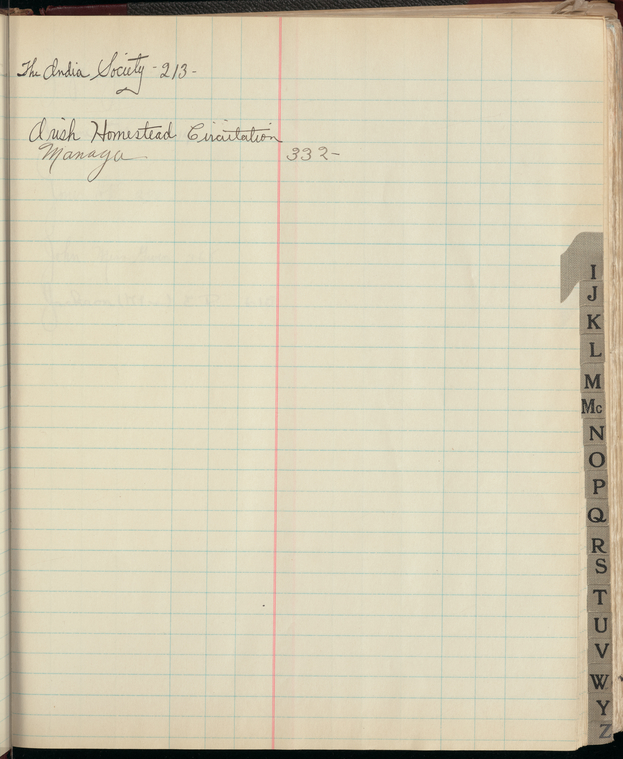 The India Society - 213 -
Irish Homestead Circulation
Manager 332 -
I
J
K
L
M
Mc
N
O
P
Q
R
S
T
U
V
W
Y
Z